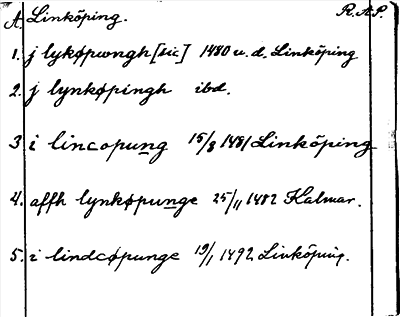 A. Linköping. R.A.P.
1. j lykøpwngh [sic] 1480 u.d. Linköping
2. j lynkøpingh ibd.
3 i lincopung 15/8 1481 Linköping
4. affh lynkøpunge 25/11 1482 Kalmar.
5. i lindcøpunge 19/1 1492 Linköping.